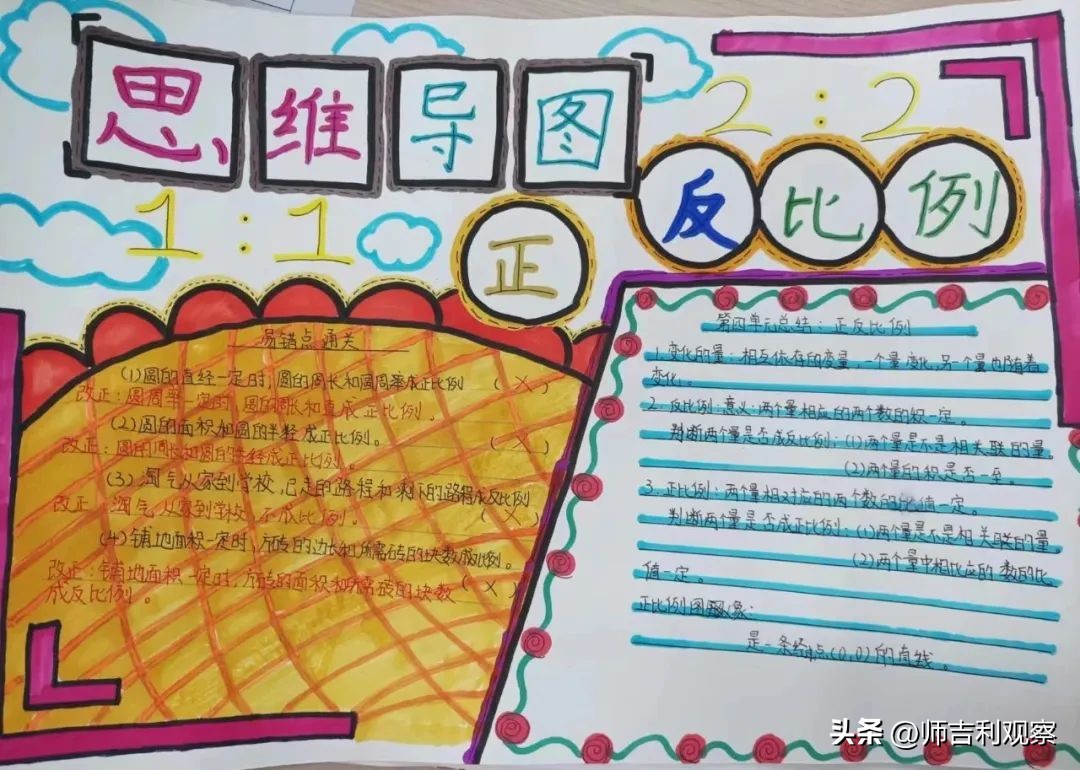 思维导图
2:2
1:1
正反比例
易错点通关
(1)圆的直径一定时,圆的周长和圆周率成正比例 (×)
改正:圆周率一定时,圆的周长和直成正比例。
(2)圆的面积和圆的半径成正比例。 (×)
改正:圆的周长和圆的半径成正比例。
(3)淘气从家到学校,已走的路程和剩下的路程成反比例
改正:淘气从家到学校,不成比例。 (×)
(4)铺地面积一定时,方砖的边长和所需砖的块数成反比例。
改正:铺地面积一定时,方砖的面积和所需砖的块数 (×)
成反比例。
第四单元总结:正反比例
1.变化的量:相互依存的变量,一个量变化,另一个量也随着
变化。
2.反比例:意义:两个量相应的两个数的积一定。
判断两个量是否成反比例:(1)两个量是不是相关联的量。
(2)两个量的积是否一至。
3.正比例:两个量相对应的两个数的比值一定。
判断两个量是否成正比例:(1)两个量是不是相关联的量。
(2)两个量中相比应的数的比
值一定。
正比例图象:
是一条经点(0,0)的直线。
头条 @师吉利观察